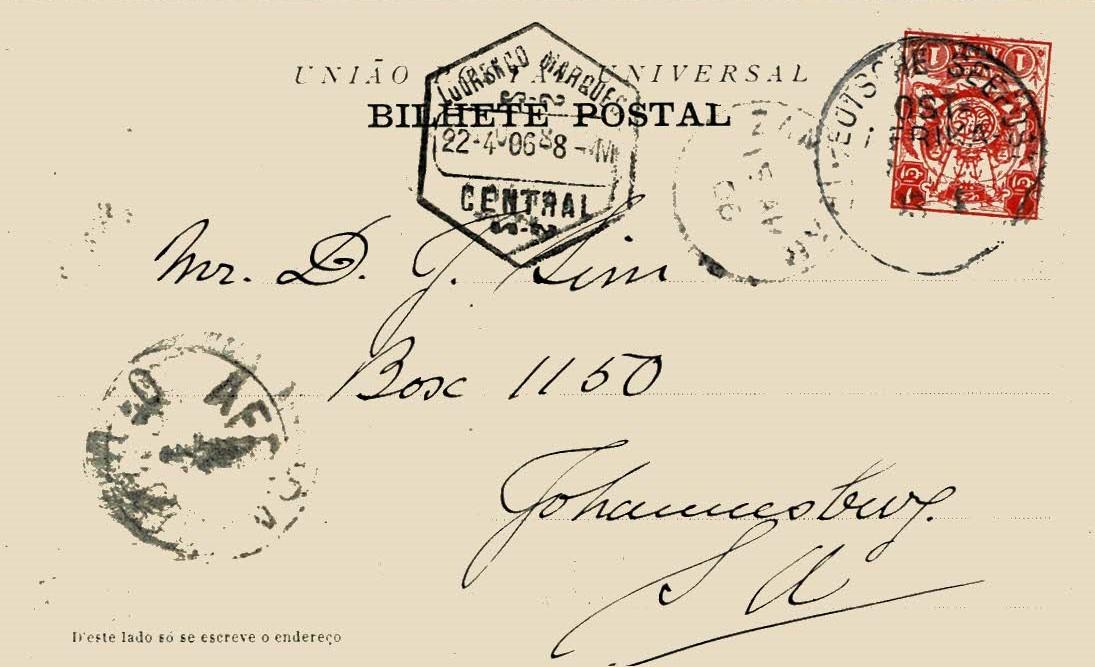 UNIÃO UNIVERSAL
BILHETE POSTAL
LOURENÇO MARQUES
22-4-06 8-M
CENTRAL
DEUTSCHE SEEPOST
OST-
AFRIKA
ZAN
1 1
Mr. D. J. Sim
Box 1150
Johannesburg.
S A
D'este lado só se escreve o endereço